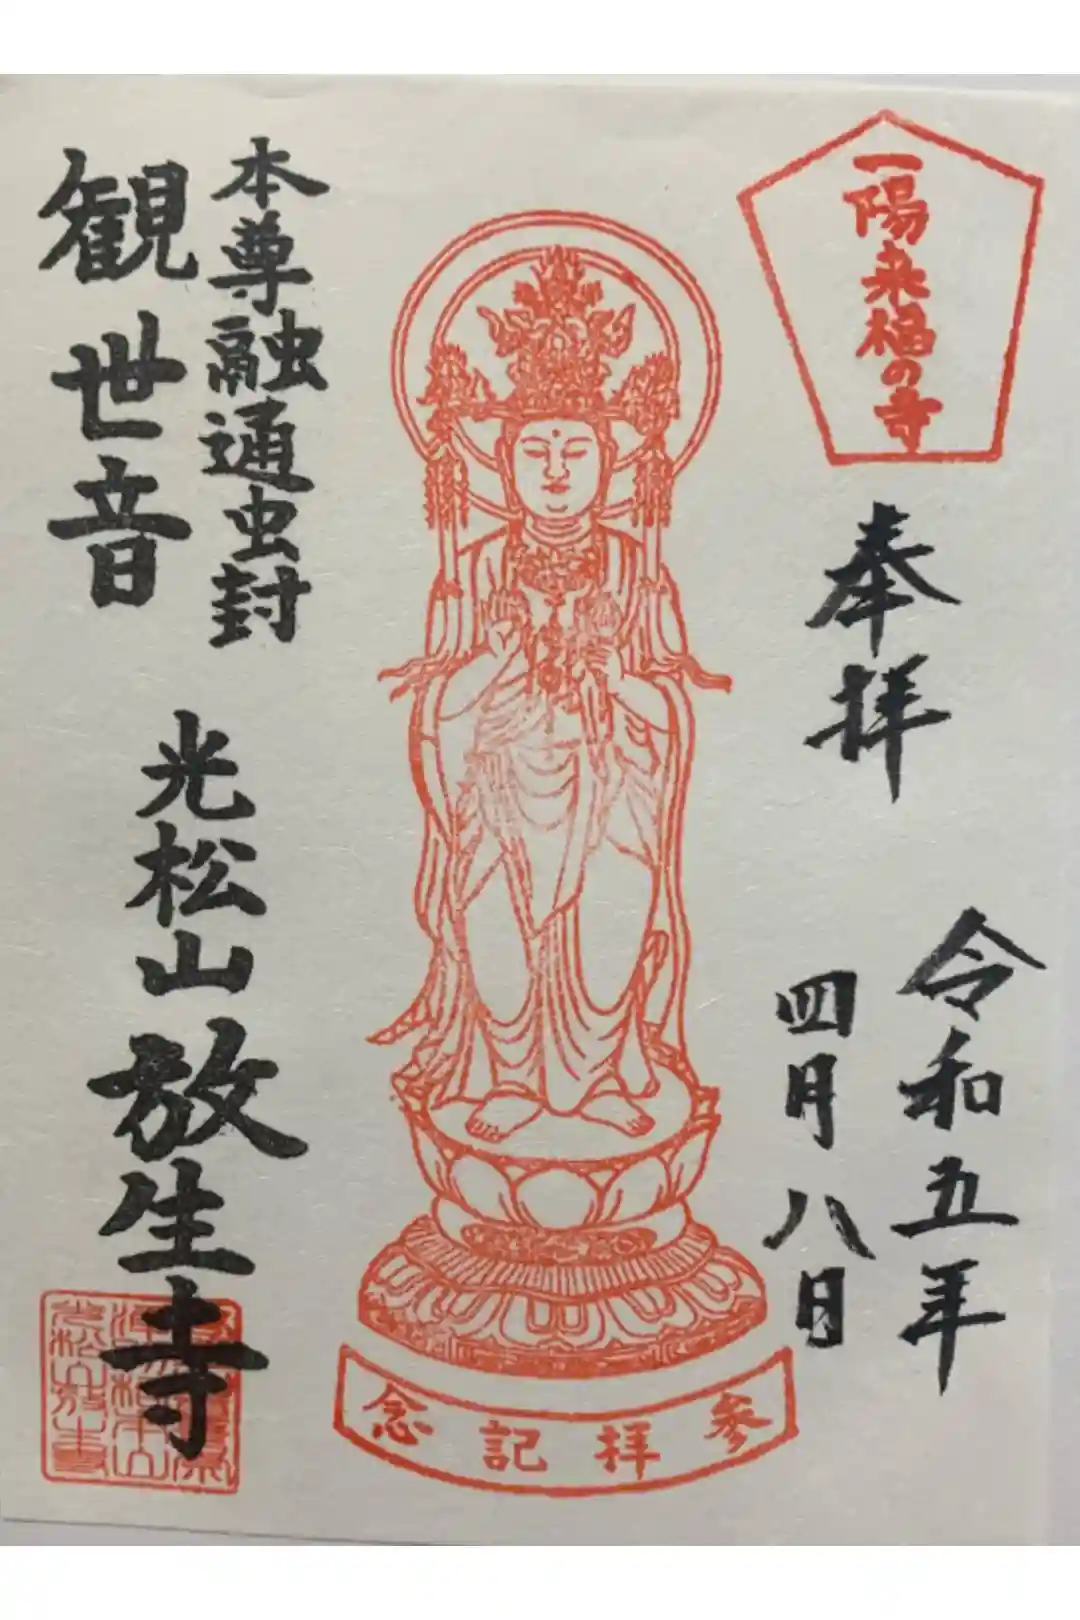 一陽来福の寺
奉拝
令和五年
四月八日
参拝記念
本尊融通虫封
観世音
光松山
放生寺